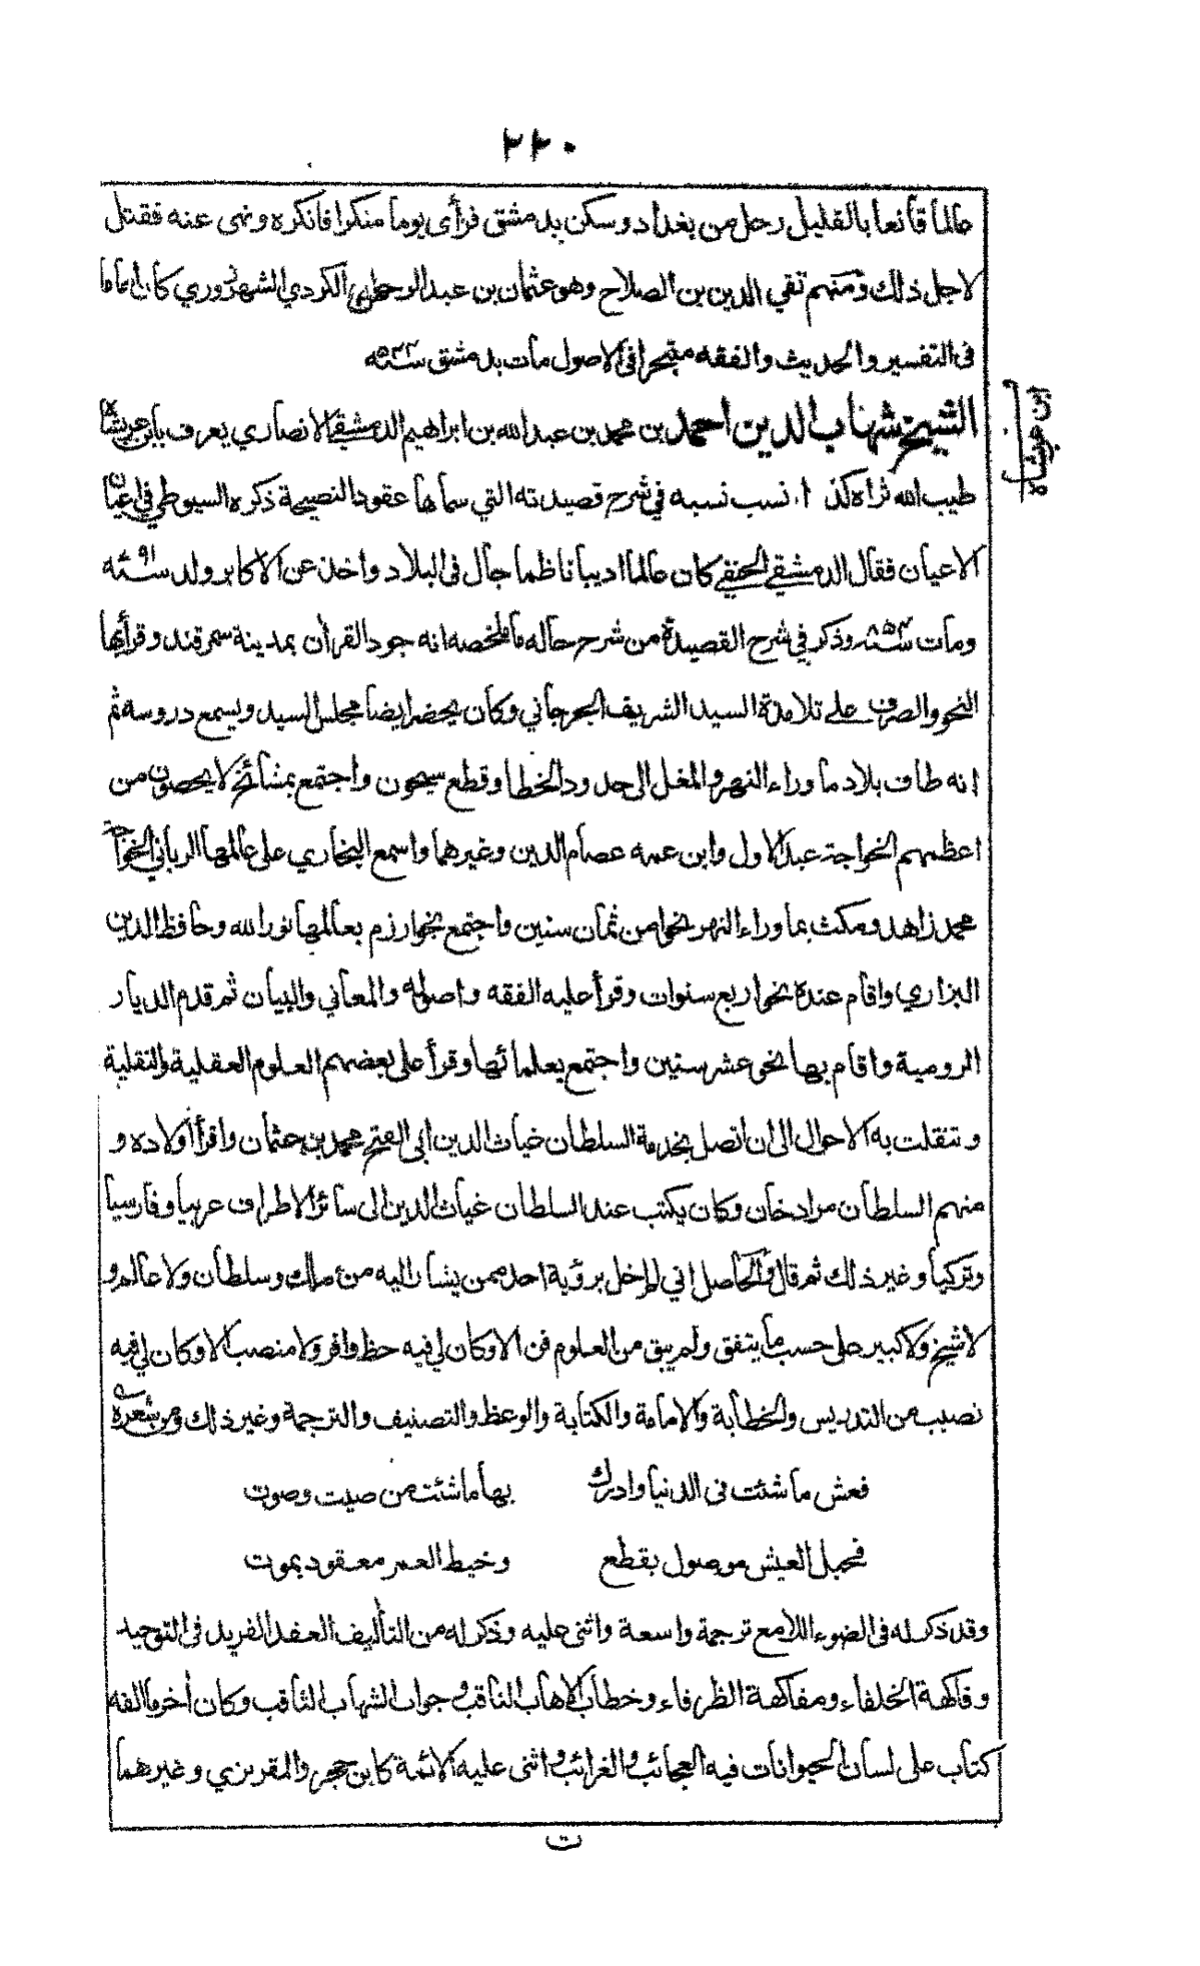 ٢٢٠
عالما قانعا بالقليل رحل من بغداد وسكن بدمشق فرأى يوما منكرا فانكره ونهى عنه فقتل
لاجل ذلك ومنهم تقي الدين بن الصلاح وهو عثمان بن عبد الرحمن الكردي الشهرزوري كان اماما
فى التفسير والحديث والفقه متبحرا فى الاصول مات بدمشق سنة
الشيخ شهاب الدين احمد بن محمد بن عبد الله بن ابراهيم الدمشقي الانصاري يعرف بابن عربشاه
ابن عربشاه
طيب الله ثراه كذا انسب نسبه في شرح قصيدته التي سماها عقود النصيحة ذكره السيوطي في اعيان
الاعيان فقال الدمشقي الحنفي كان عالما اديبا ناظما جال فى البلاد واخذ عن الاكابر ولد سنة ٧٩١
ومات سنة ٨٥٤ وذكر في شرح القصيدة من شرح حاله ما ملخصه انه جود القرأن بمدينة سمرقند وقرأ بها
النحو والصرف على تلامذة السيد الشريف الجرجاني وكان يحضر ايضا مجلس السيد ويسمع دروسه ثم
انه طاف بلاد ما وراء النهر والمغل الى حدود الخطا وقطع سيحون واجتمع بمشائخ لا يحصون من
اعظمهم الخواجة عبد الاول وابن عمه عصام الدين وغيرهما واسمع البخاري على عالمها الرباني الخواجة
محمد زاهد ومكث بما وراء النهر نحوا من ثمان سنين واجتمع بخوارزم بعالمها نور الله وحافظ الدين
البزازي واقام عنده نحو اربع سنوات وقرأ عليه الفقه واصوله والمعاني والبيان ثم قدم الديار
الرومية واقام بها نحو عشر سنين واجتمع بعلمائها وقرأ على بعضهم العلوم العقلية والنقلية
وتنقلت به الاحوال الى ان اتصل بخدمة السلطان غياث الدين ابى الفتح محمد بن عثمان واقرأ اولاده و
منهم السلطان مراد خان وكان يكتب عند السلطان غياث الدين الى سائر الاطراف عربيا وفارسيا
وتركيا وغير ذلك ثم قال والحاصل اني لم اخل برؤية احد ممن يشار اليه من ملك وسلطان ولا عالم و
لا شيخ ولا كبير على حسب ما يتفق ولم يبق من العلوم فن الا وكان لي فيه حظ وافر ولا منصب الا وكان لي فيه
نصيب من التدريس والخطابة والامامة والكتابة والوعظ والتصنيف والترجمة وغير ذلك ومن شعره
فعش ما شئت فى الدنيا وادرك بها ما شئت من صيت وصوت
فحبل العيش موصول بقطع وخيط العمر معقود بموت
وقد ذكر له فى الضوء اللامع ترجمة واسعة واثنى عليه وذكر له من التأليف العقد الفريد فى التوحيد
وفاكهة الخلفاء ومفاكهة الظرفاء وخطاب الاهاب الناقب وجواب الشهاب الثاقب وكان أخر ما الفه
كتاب على لسان الحيوانات فيه العجائب والغرائب واثنى عليه الائمة كابن حجر والمقريزي وغيرهما
ت